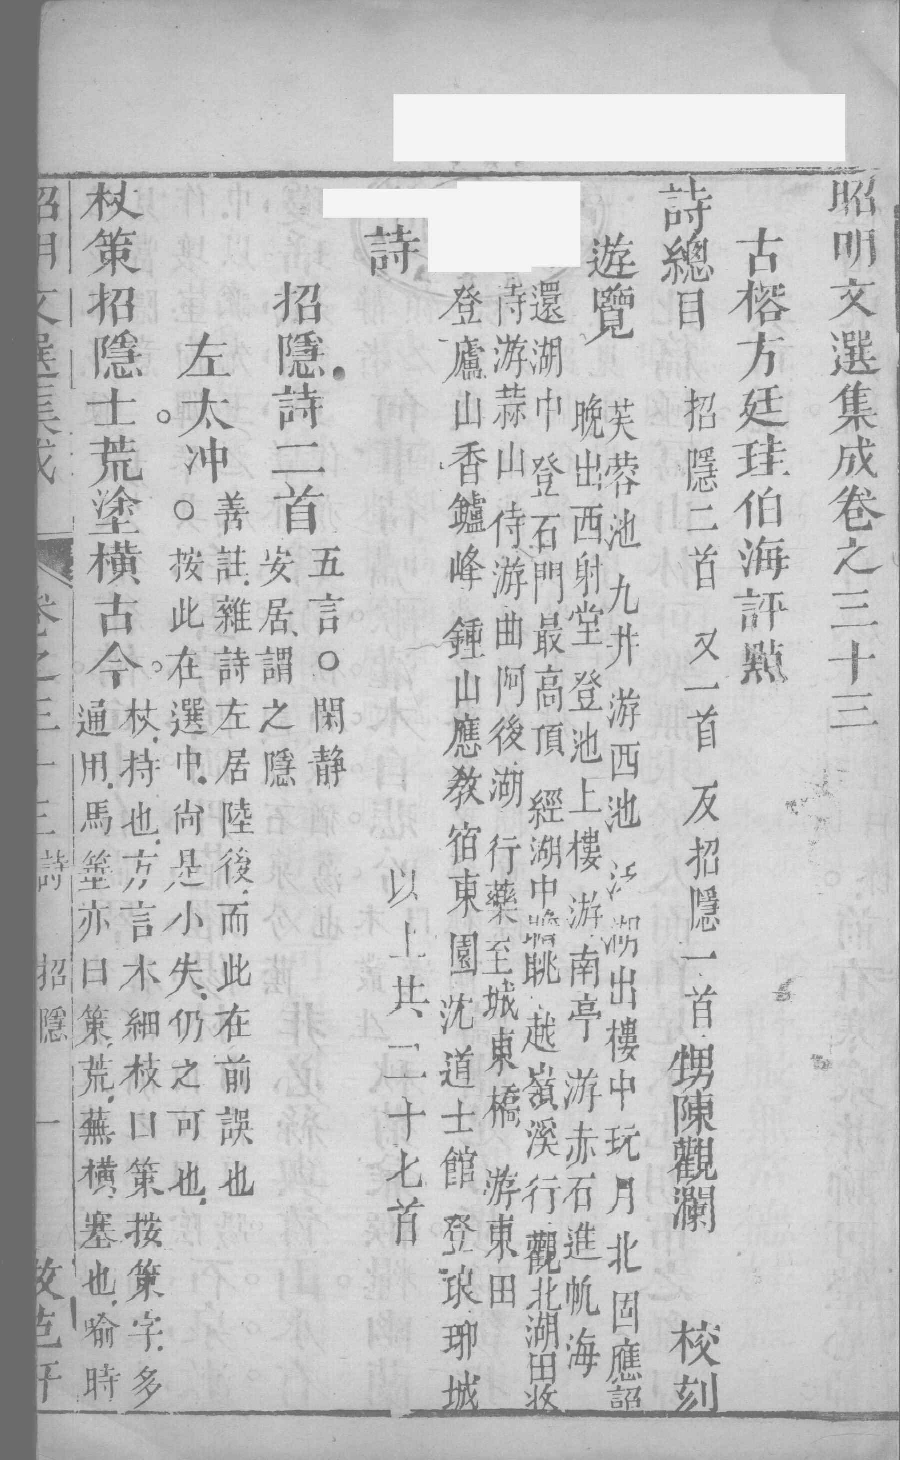 昭明文選集成卷之三十三
古榕方廷珪伯海評點
詩總目 招隱二首 又一首 反招隱一首 甥陳觀瀾 校刻
遊覽 芙蓉池 九井 游西池 泛湖出樓中玩月 北固應詔
晚出西射堂 登池上樓 游南亭 游赤石進帆海
還湖中 登石門最高頂 經湖中瞻眺 越嶺溪行 觀北湖田收
侍游蒜山 侍游曲阿後湖 行藥至城東橋 游東田
登廬山香鑪峰 鍾山應敎 宿東園 沈道士館 登琅琊城
詩 以上共二十七首
招隱詩二首 五言○閑静
安居謂之隱
左太冲○善註雜詩左居陸後而此在前誤也
按此在選中尚是小失仍之可也
杖策招隱士荒塗橫古今 杖持也方言木細枝曰策按策字多
通用馬箠亦曰策荒蕪橫塞也喻時
昭明文選集成 卷之三十三 詩 招隱 一